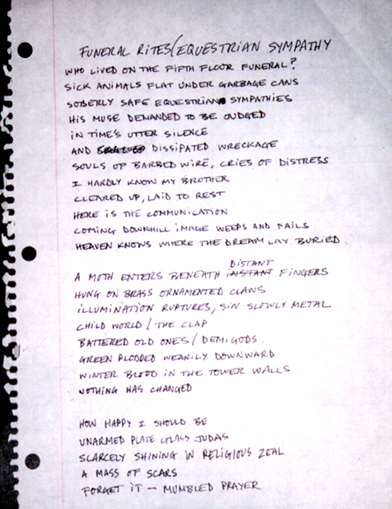 FUNERAL RITES/EQUESTRIAN SYMPATHY
WHO LIVED ON THE FIFTH FLOOR FUNERAL?
SICK ANIMALS FLAT UNDER GARBAGE CANS
SOBERLY SAFE EQUESTRIAN SYMPATHIES
HIS MUSE DEMANDED TO BE JUDGED
IN TIME'S UTTER SILENCE
AND DISSIPATED WRECKAGE
SOULS OF BARBED WIRE, CRIES OF DISTRESS
I HARDLY KNOW MY BROTHER
CLEARED UP, LAID TO REST
HERE IS THE COMMUNICATION
COMING DOWNHILL IMAGE WEEPS AND FAILS
HEAVEN KNOWS WHERE THE DREAM LAY BURIED.
DISTANT
A MOTH ENTERS BENEATH INSTANT FINGERS
HUNG ON BRASS ORNAMENTED CLAWS
ILLUMINATION RUPTURES, SIN SLOWLY METAL
CHILD WORLD / THE CLAP
BATTERED OLD ONES / DEMIGODS
GREEN PLODDED WEARILY DOWNWARD
WINTER BLOOD IN THE TOWER WALLS
NOTHING HAS CHANGED
HOW HAPPY I SHOULD BE
UNARMED PLATE GLASS JUDAS
SCARCELY SHINING IN RELIGIOUS ZEAL
A MASS OF SCARS
FORGET IT — MUMBLED PRAYER